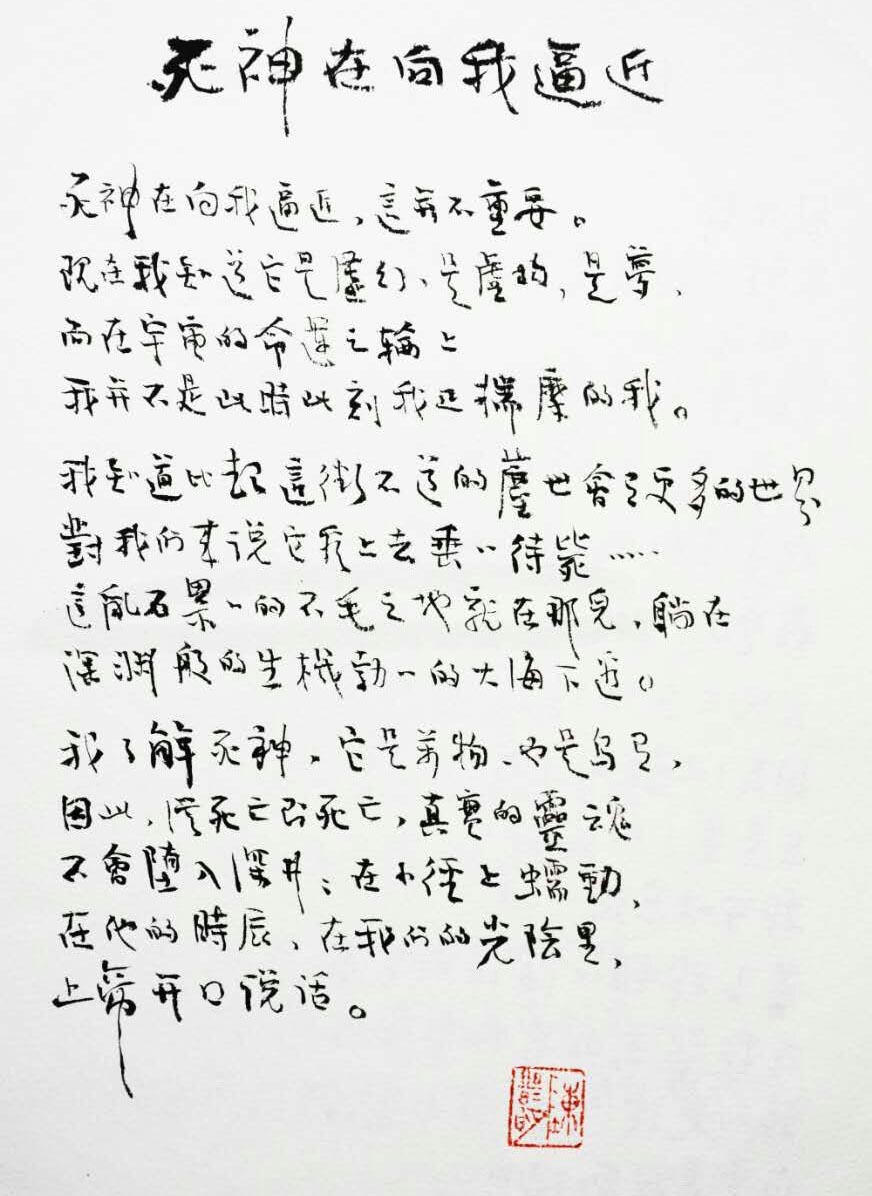 死神在向我逼近
死神在向我逼近,這并不重要。
现在我知道它是虛幻、是虛构,是夢,
而在宇宙的命運之輪上
我并不是此時此刻我正揣摩的我。
我知道比起這微不足道的塵世會有更多的世界
對我们来说它看上去垂〻待毙……
這亂石累〻的不毛之地就在那兒,躺在
深渊般的生機勃〻的大海下边。
我了解死神。它是萬物、也是烏有,
因此,從死亡到死亡,真實的靈魂
不會墮入深井;在小徑上蠕動,
在他的時辰、在我们的光陰里,
上帝开口说话。